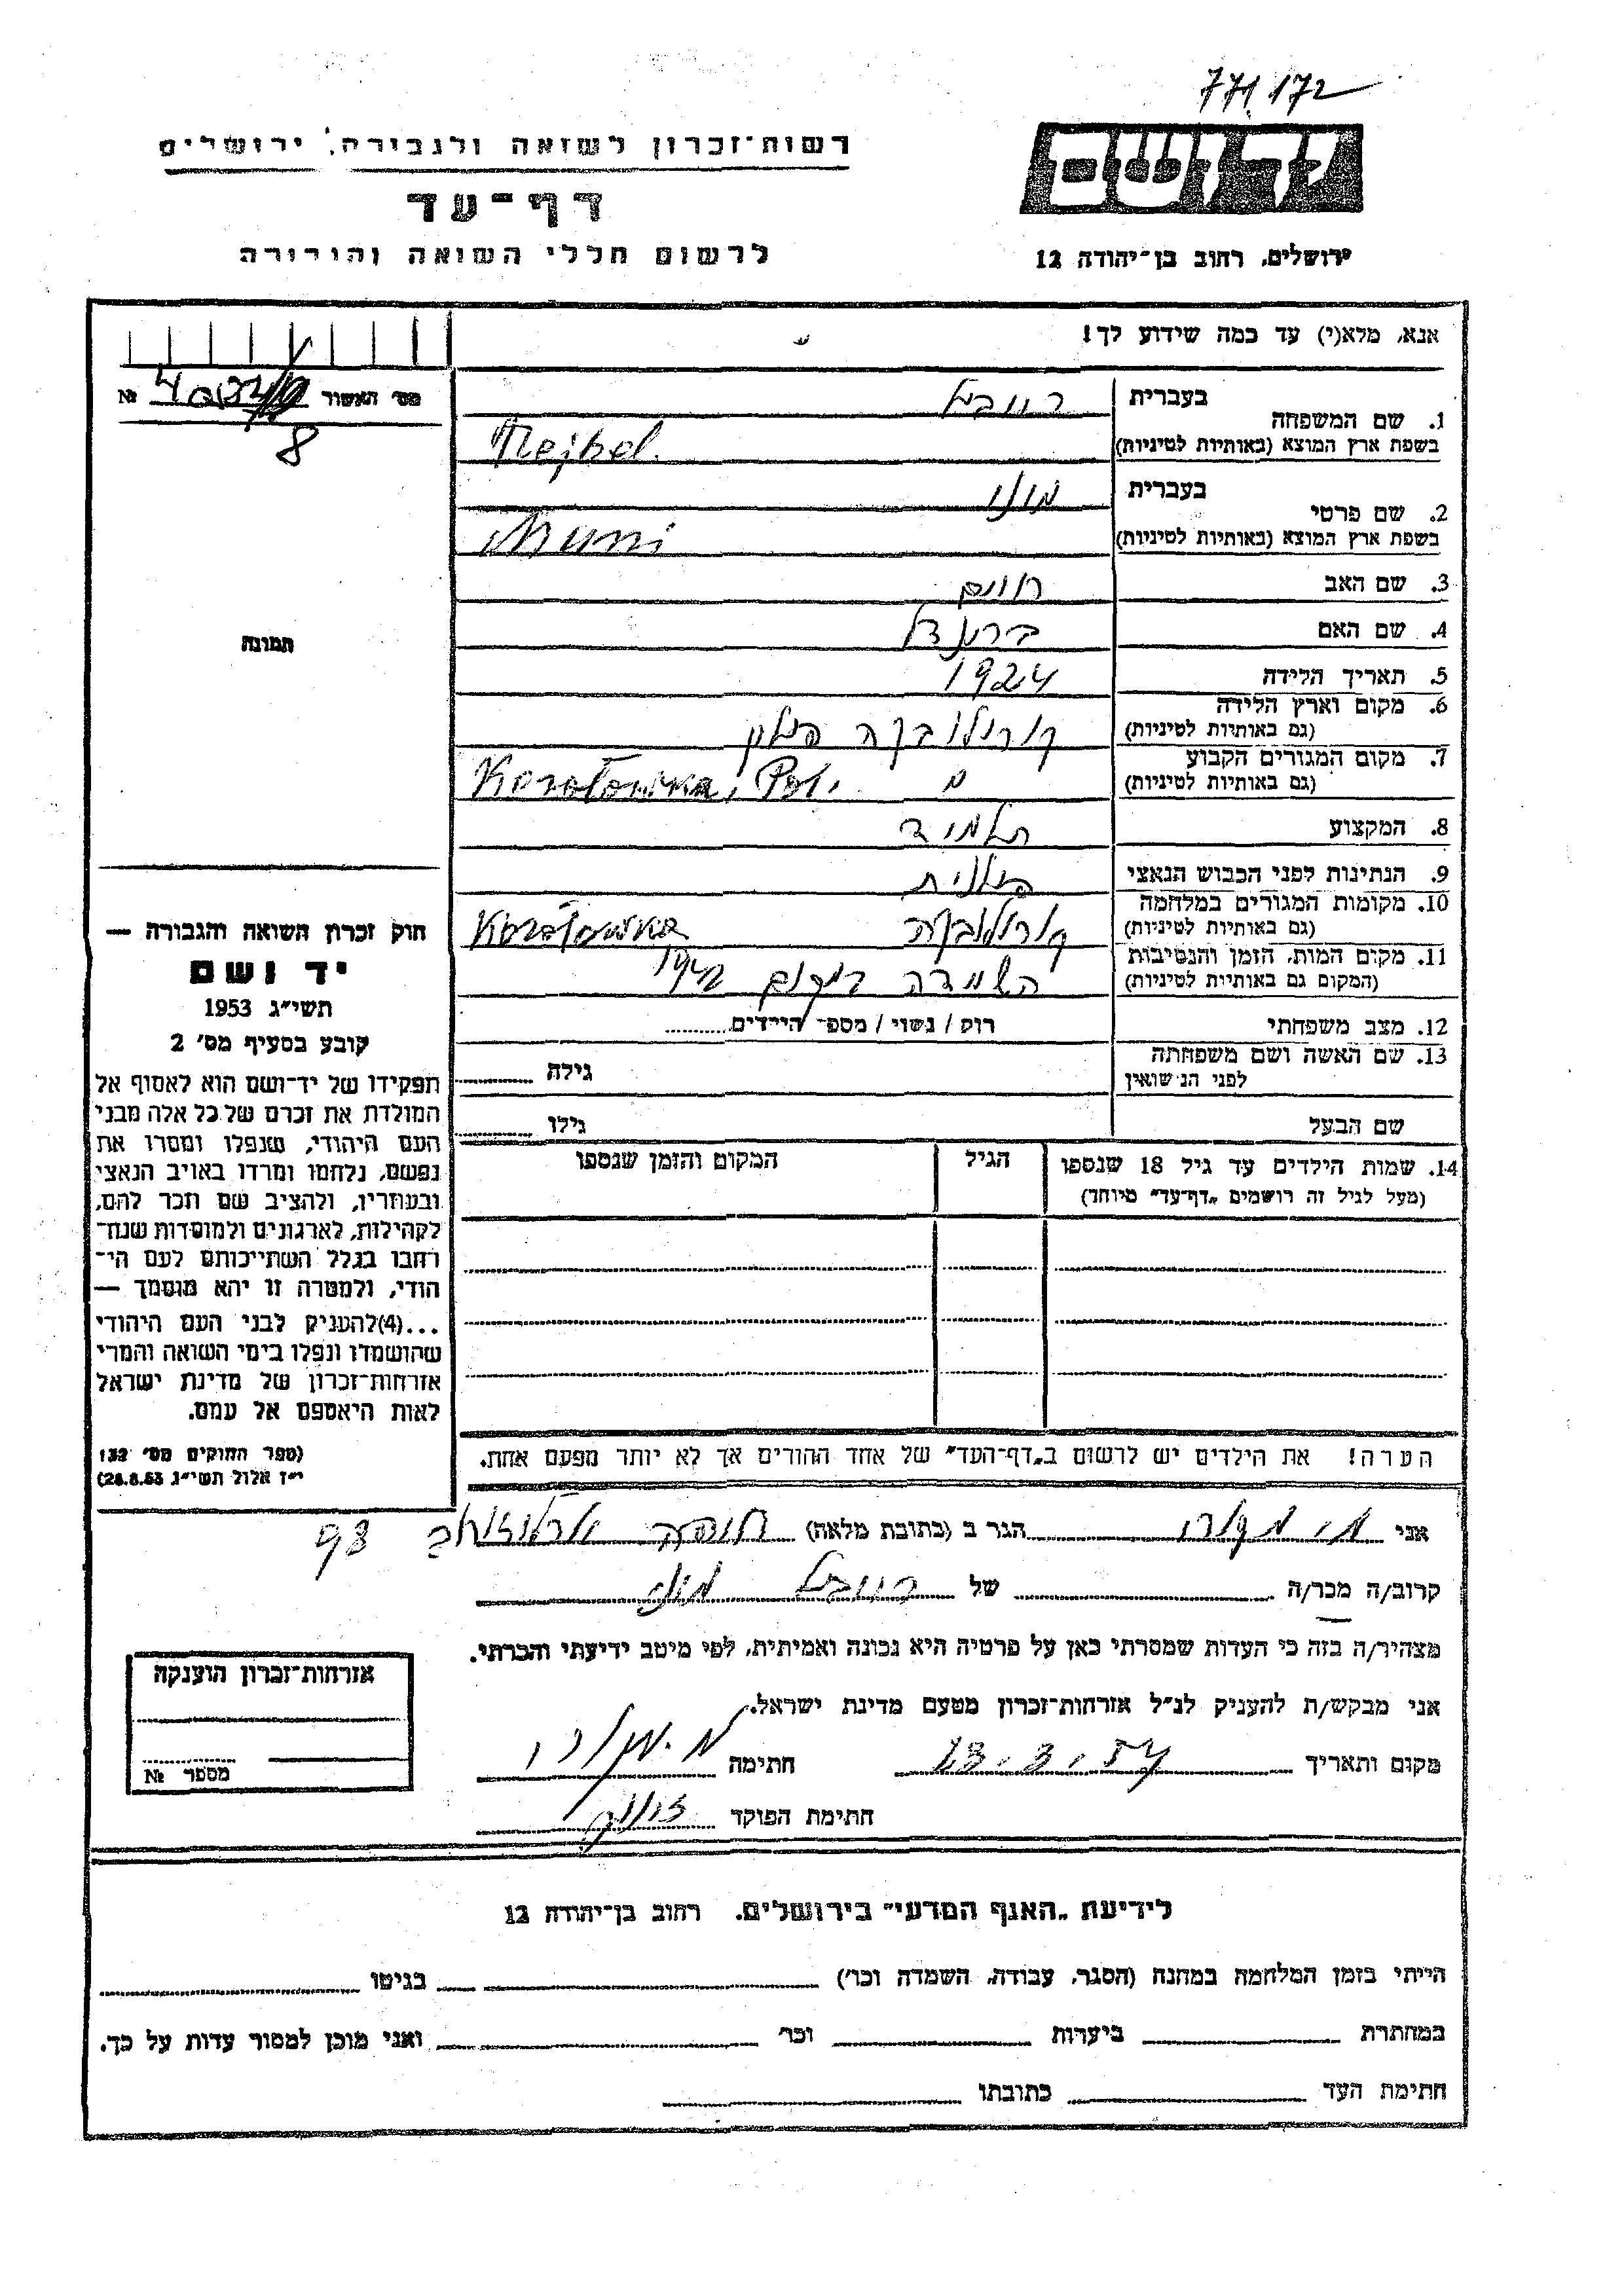 771.172
רשות־זכרון לשואה ולגבורה, ירושלים
דף־עד
לרשום חללי השואה והגבורה
יד ושם
ירושלים, רחוב בן־יהודה 12
אנא, מלא(י) עד כמה שידוע לך!
מס׳ האשור №
8
תמונה
1. שם המשפחה בעברית רייבל
בשפת ארץ המוצא (באותיות לטיניות) Rejbel
2. שם פרטי בעברית מוני
בשפת ארץ המוצא (באותיות לטיניות) Muni
3. שם האב חיים
4. שם האם
5. תאריך הלידה 1924
6. מקום וארץ הלידה (גם באותיות לטיניות) קורולובקה פולין
7. מקום המגורים הקבוע (גם באותיות לטיניות) Korołowka, Pol.
8. המקצוע תלמיד
9. הנתינות לפני הכבוש הנאצי פולנית
10. מקומות המגורים במלחמה (גם באותיות לטיניות) קורולובקה Korołowka
11. מקום המות, הזמן והנסיבות (המקום גם באותיות לטיניות) השמדה במקום 1942
12. מצב משפחתי רוק / נשוי / מספר הילדים
13. שם האשה ושם משפחתה לפני הנשואין גילה
שם הבעל גילו
14. שמות הילדים עד גיל 18 שנספו הגיל המקום והזמן שנספו
(מעל לגיל זה רושמים „דף־עד״ מיוחד)
הערה! את הילדים יש לרשום ב„דף־העד״ של אחד ההורים אך לא יותר מפעם אחת.
חוק זכרון השואה והגבורה —
יד ושם
תשי״ג 1953
קובע בסעיף מס׳ 2
תפקידו של יד־ושם הוא לאסוף אל
המולדת את זכרם של כל אלה מבני
העם היהודי, שנפלו ומסרו את
נפשם, נלחמו ומרדו באויב הנאצי
ובעוזריו, ולהציב שם וזכר להם,
לקהילות, לארגונים ולמוסדות שנח־
רבו בגלל השתייכותם לעם הי־
הודי, ולמטרה זו יהא מוסמך —
...(4) להעניק לבני העם היהודי
שהושמדו ונפלו בימי השואה והמרי
אזרחות־זכרון של מדינת ישראל
לאות היאספם אל עמם.
(ספר החוקים מס׳ 132
י״ז אלול תשי״ג 28.8.53)
אני הגר ב (כתובת מלאה) חיפה ארלוזורוב 98
קרוב/ה מכר/ה של רייבל מוני
מצהיר/ה בזה כי העדות שמסרתי כאן על פרטיה היא נכונה ואמיתית, לפי מיטב ידיעתי והכרתי.
אני מבקש/ת להעניק לנ״ל אזרחות־זכרון מטעם מדינת ישראל.
מקום ותאריך חתימה
חתימת הפוקד
אזרחות־זכרון הוענקה
מספר №
לידיעת „האגף המדעי״ בירושלים. רחוב בן־יהודה 12
הייתי בזמן המלחמה במחנה (הסגר, עבודה, השמדה וכו׳) בגיטו
במחתרת ביערות וכו׳ ואני מוכן למסור עדות על כך.
חתימת העד כתובתו